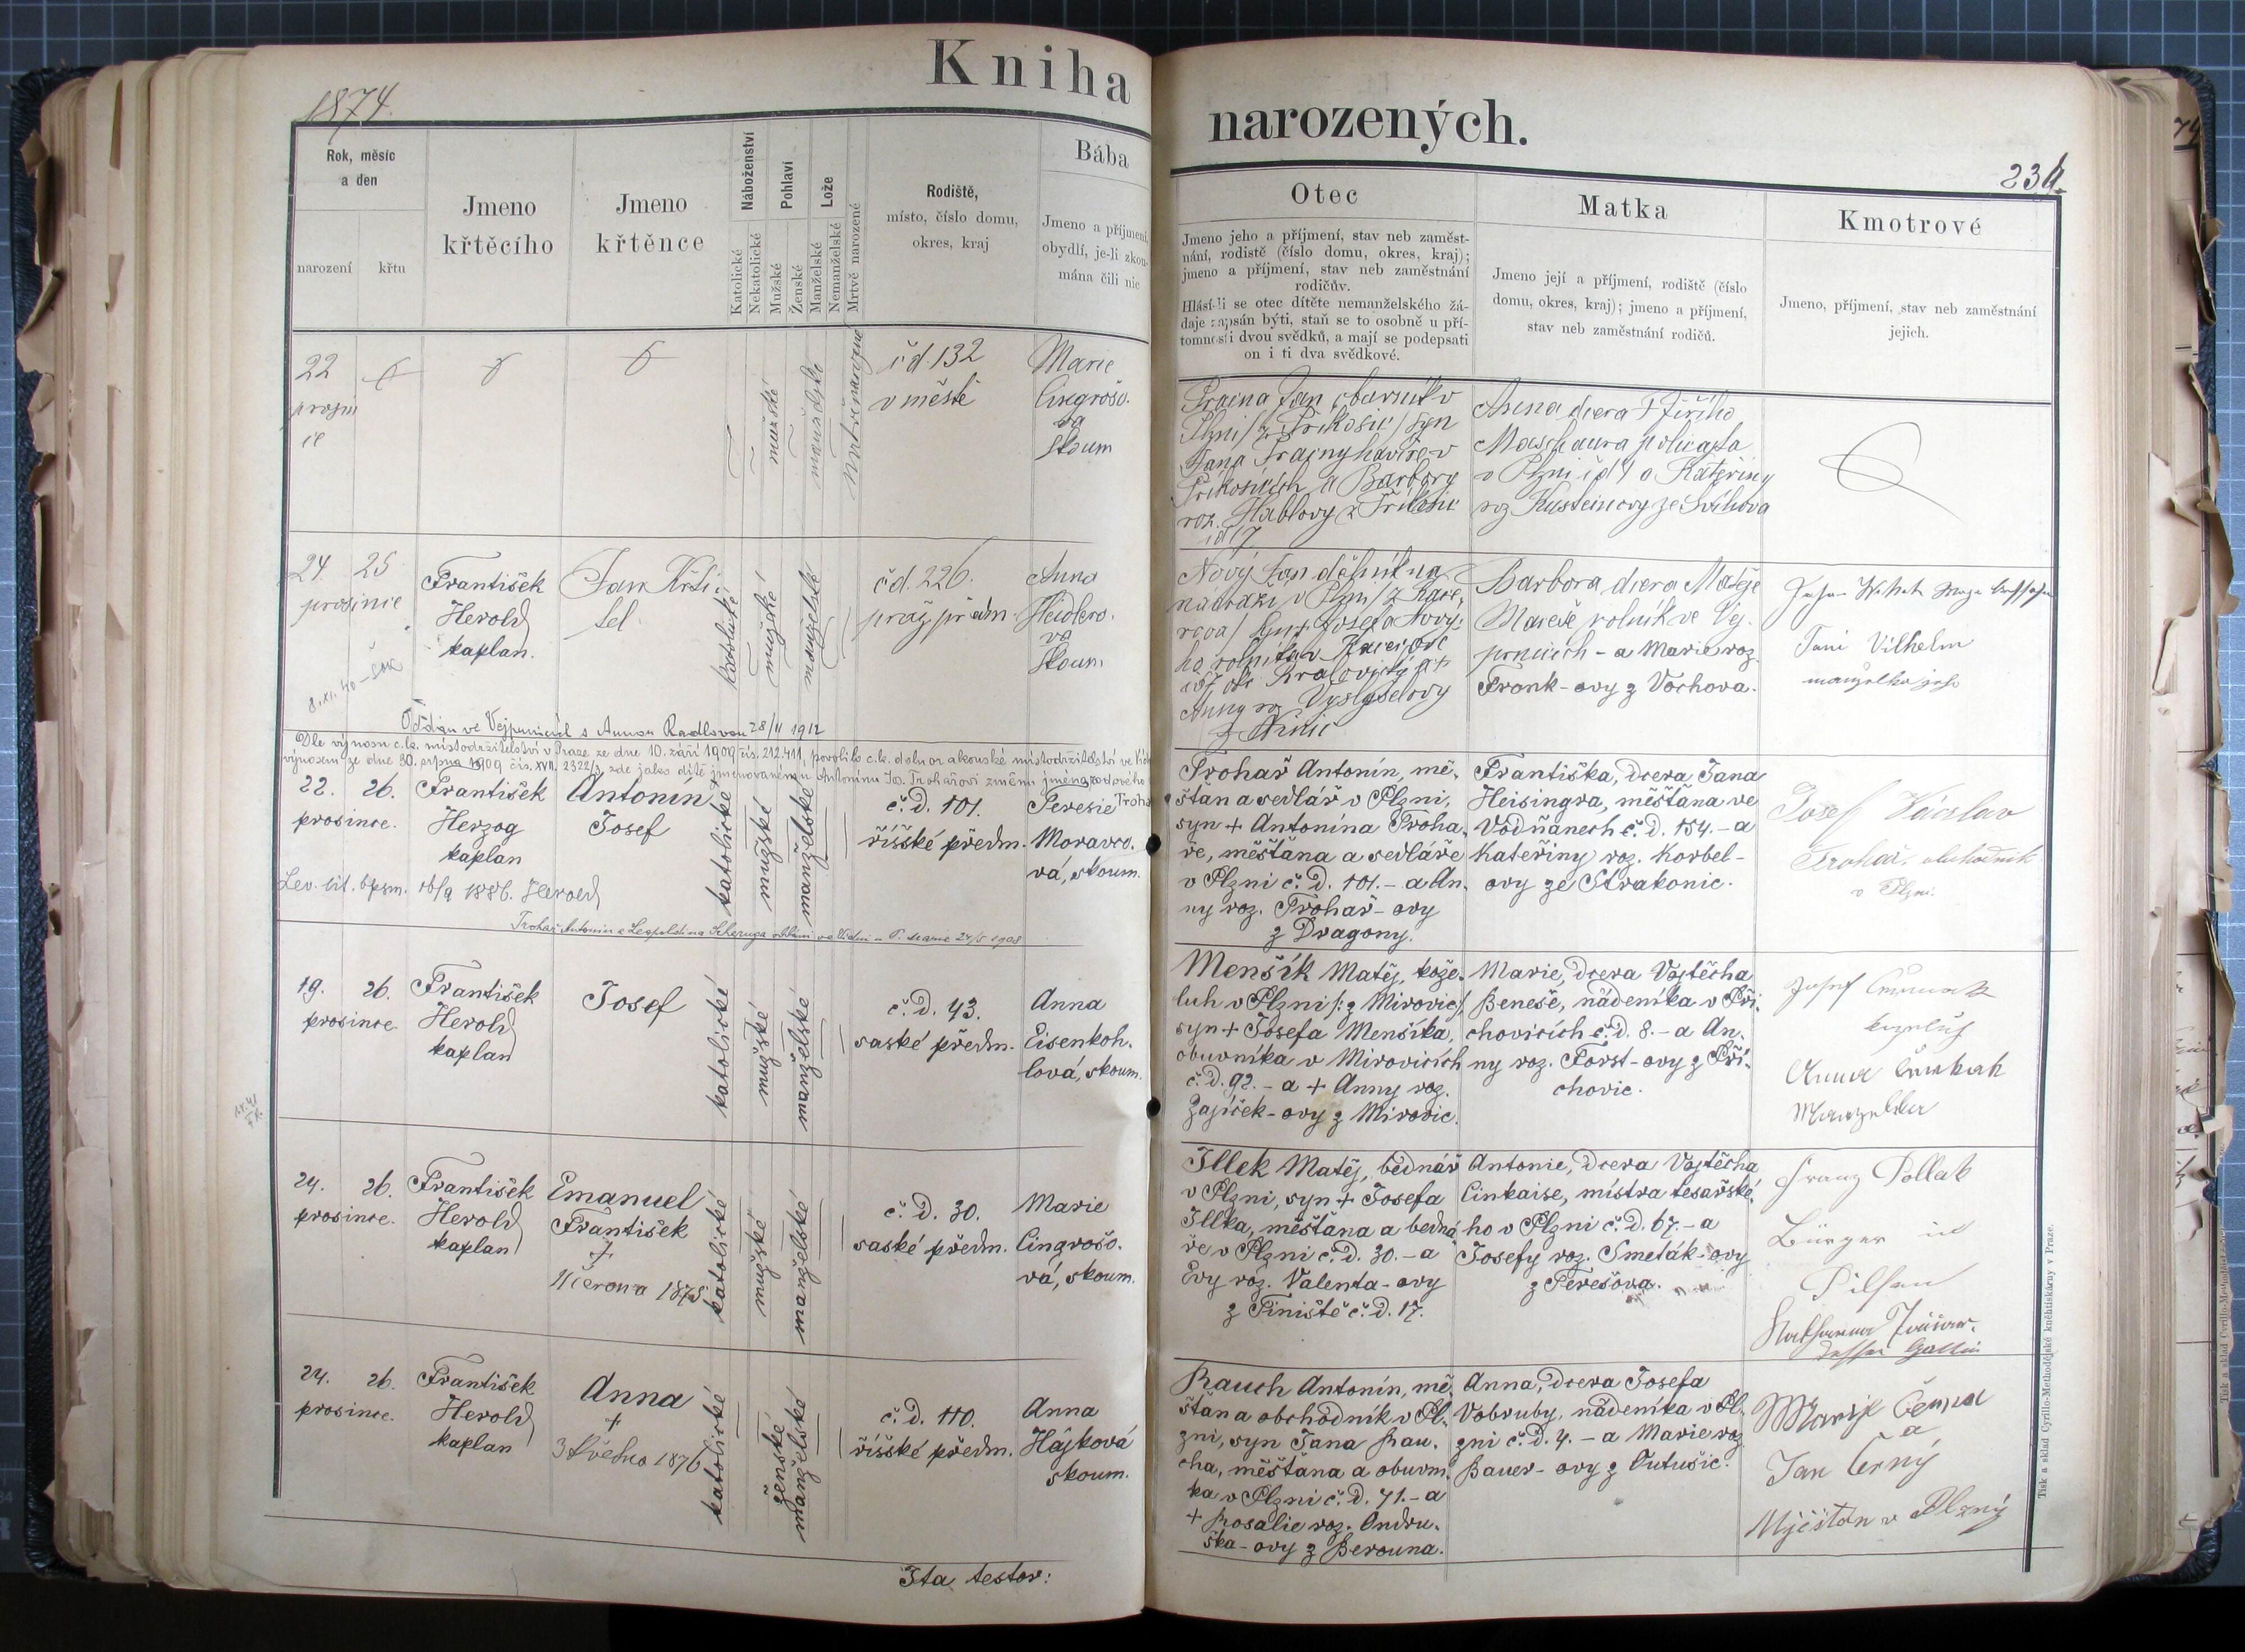 1874.
Kniha
Rok, měsíc
a den
narození
křtu
Jmeno
křtěcího
Jmeno
křtěnce
Náboženství
Katolické
Nekatolické
Pohlaví
Mužské
Ženské
Lože
Manželské
Nemanželské
Mrtvě narozené
Rodiště,
místo, číslo domu,
okres, kraj
Bába
Jmeno a příjmení,
obydlí, je-li zkou-
mána čili nic
22
prosin
ce
mužské
manželské
čd. 132
v městě
Marie
Cingrošo-
vá
skoum
24. 25
prosince
František
Herold
kaplan.
Jan Křti-
tel
katolické
mužské
manželské
čd. 226.
praž předm.
Anna
Heidlero-
vá
skoum
Oddán ve Vejprnicích s Annou Radlovou 28/II 1912
Dle výnosu c.k. místodržitelství v Praze ze dne 10. září 1909 čís. 212.411, povolilo c.k. dolnorakouské místodržitelství ve
výnosem ze dne 30. srpna 1909 čís. XVII. 2322/3, zde jako dítě jmenovanému Antonínu Jos. Trohařovi změnu jména rodového
22. 26.
prosince.
František
Herzog
kaplan
Antonín
Josef
katolické
mužské
manželské
č. d. 101.
říšské předm.
Teresie
Moravco-
vá, skoum.
Lev. lit. bpsm. 16/9 1886. Herold
Trohař Antonín a Leopoldina oddáni ve Vídni 24/5 1908
19. 26.
prosince.
František
Herold
kaplan
Josef
katolické
mužské
manželské
č. d. 43.
saské předm.
Anna
Eisenkoh-
lová, skoum.
24. 26.
prosince.
František
Herold
kaplan
Emanuel
František
+
11 června 1875
katolické
mužské
manželské
č. d. 30.
saské předm.
Marie
Cingrošo-
vá, skoum.
24. 26.
prosince.
František
Herold
kaplan
Anna
+
3 1876
katolické
ženské
manželské
č. d. 110.
říšské předm.
Anna
Hájková
skoum.
Ita testor:
narozených.
234.
Otec
Jmeno jeho a příjmení, stav neb zaměst-
nání, rodistě (číslo domu, okres, kraj);
jmeno a příjmení, stav neb zaměstnání
rodičův.
Hlásí-li se otec dítěte nemanželského žá-
daje zapsán býti, staň se to osobně u pří-
tomnosti dvou svědků, a mají se podepsati
on i ti dva svědkové.
Matka
Jmeno její a příjmení, rodiště (číslo
domu, okres, kraj); jmeno a příjmení,
stav neb zaměstnání rodičů.
Kmotrové
Jmeno, příjmení, stav neb zaměstnání
jejich.
Jan
Plzni / z Příkosic / syn
Jana havíře v
Příkosicích a Barbory
roz. Hablovy z
čd 7
Anna dcera + Jiřího
Maschaura policajta
v Plzni čd 1 a Kateřiny
roz ze Švihova
Nový Jan dělník na
nádraží v Plzni / z
syn + Josefa Nový-
ho rolníka v
Kralovický a +
Anny roz Vyslyšelovy
z
Barbora dcera Matěje
Mareše rolník ve Vej-
prnicích - a Marie roz.
Frank-ovy z Vochova.
Vilhelm
manželka jeho
Trohař Antonín, mě-
šťan a sedlář v Plzni,
syn + Antonína Troha-
ře, měšťana a sedláře
v Plzni č. d. 101. - a An-
ny roz. Trohař-ovy
z Dragony.
Františka, dcera Jana
Heisingra, měšťana ve
Vodňanech č. d. 154. - a
Kateřiny roz. Korbel-
ovy ze Strakonic.
Josef Václav
Trohař, obchodník
v Plzni.
Menšík Matěj, kože-
luh v Plzni /: z Mirovic /,
syn + Josefa Menšíka,
obuvníka v Mirovicích
č. d. 92. - a + Anny roz.
Zajíček-ovy z Mirovic.
Marie, dcera Vojtěcha
Beneše, nádeníka v Při-
chovicích č. d. 8. - a An-
ny roz. Forst-ovy z Při-
chovic.
Josef
Anna
Illek Matěj, bednář
v Plzni, syn + Josefa
Illka, měšťana a bedná-
ře v Plzni č. d. 30. - a
Evy roz. Valenta-ovy
z Tiniště č. d. 17.
Antonie, dcera Vojtěcha
Cinkaise, mistra tesařské-
ho v Plzni č. d. 67. - a
Josefy roz. Smeták-ovy
z Terešova.
Franz Pollak
Bürger in
Pilsen
Katharina
dessen Gattin
Rauch Antonín, mě-
šťan a obchodník v Pl-
zni, syn Jana Rau-
cha, měšťana a obuvní-
ka v Plzni č. d. 71. - a
+ Rosalie roz. Ondru-
ška-ovy z Berouna.
Anna, dcera Josefa
Vobruby, nádeníka v Pl-
zni č. d. 4. - a Marie roz
Bauer-ovy z Lutušic.
a
Jan Černý
Mješťan v Plzný
Tisk a sklad Cyrillo-Methodějské knihtiskárny v Praze.